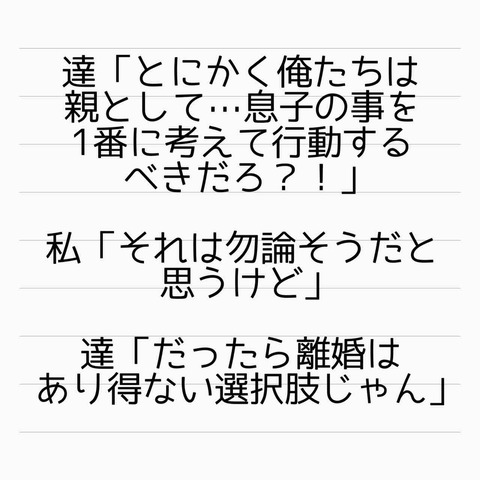 達「とにかく俺たちは
親として…息子の事を
1番に考えて行動する
べきだろ？！」
私「それは勿論そうだと
思うけど」
達「だったら離婚は
あり得ない選択肢じゃん」